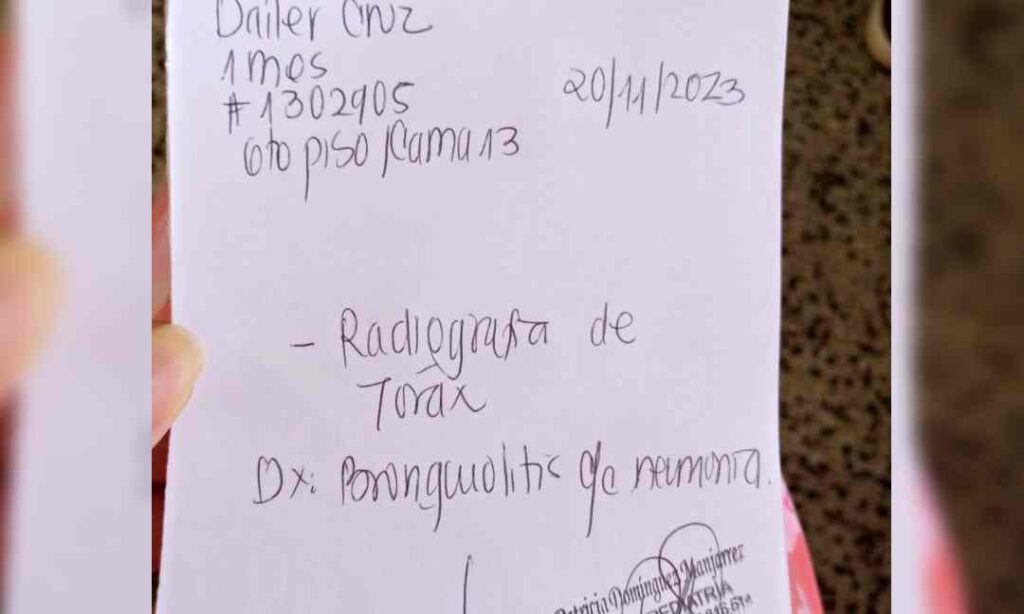 Dailer Cruz
1 mes
#1302905
6to piso/Cama 13
20/11/2023
- Radiografia de
Toráx
Dx: Bronquiolitis
neumonia.
Patricia Dominguez Manjarrez
PEDIATRIA